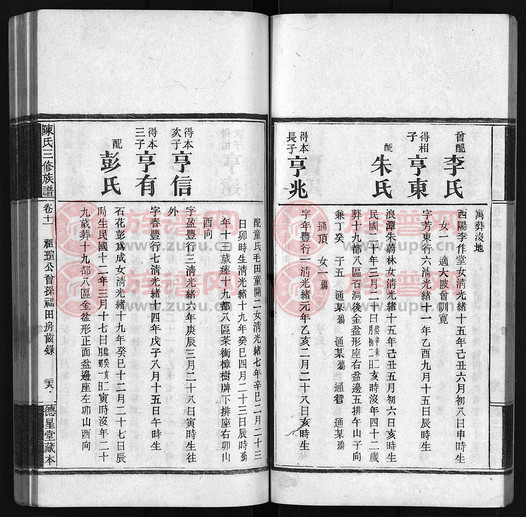 寓葬淡地
首配
李氏
酉陽李作堂女清光緒十五年己丑六月初八日申時生
女一 適大陂曾馴覽
得相子
亨東
字芳東行六清光緒十一年乙酉九月十五日辰時生
配
朱氏
浪潭朱蔚林女清光緒十五年己丑五月初六日亥時生
民國二十年三月二十日
亥時沒年四十二歲
葬十九都八區石澗後金盆形座右邊五排午山子向
兼丁癸 子五 通某殤 通某殤 通智 通某殤
通頂 女一殤
得本長子
亨兆
字年豐行二清光緒元年乙亥二月二十八日亥時生
配童氏毛田童開二女清光緒七年辛巳二月二十三
日卯時生清光緒十九年癸巳四月二十三日辰時歿
年十三歲葬十九都八區茶衡樟樹牌下排座右卯山
酉向
得本次子
亨信
字盈豐行三清光緒六年庚辰三月二十八日寅時生往
外
得本三子
亨有
字春豐行七清光緒十四年戊子八月十五日午時生
配
彭氏
石花彭為成女清光緒十九年癸巳十二月二十七日辰
時生民國十二年三月十七日
寅時沒年二十
九歲葬十九都八區金盆形正面盆邊座左卯山酉向
陳氏三修族譜
卷十一
祖蔭公曾孫福田房齒錄
德星堂藏本